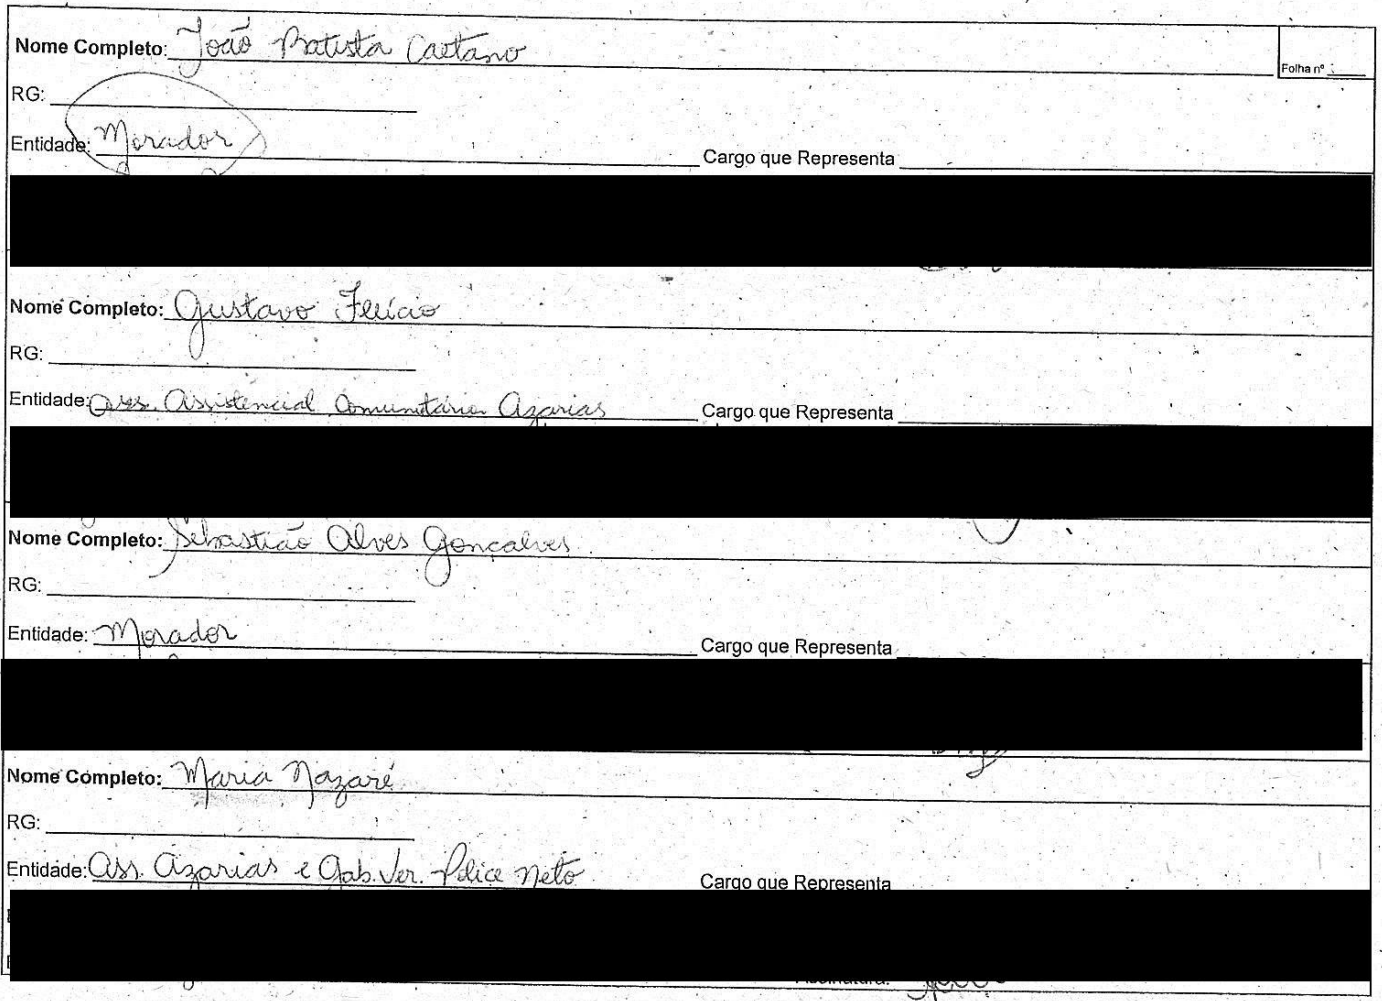 Nome Completo: João Batista Caetano
Folha nº
RG:
Entidade: Morador Cargo que Representa
Nome Completo: Gustavo Felício
RG:
Entidade: Ass. Assistencial Comunitária Azarias Cargo que Representa
Nome Completo: Sebastião Alves Gonçalves
RG:
Entidade: Morador Cargo que Representa
Nome Completo: Maria Nazaré
RG:
Entidade: Ass. Azarias e Gab. Ver. Police Neto Cargo que Representa